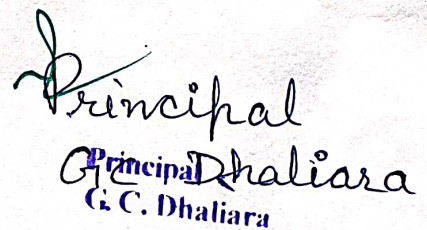 Principal
GC Dhaliara
Principal
G. C. Dhaliara